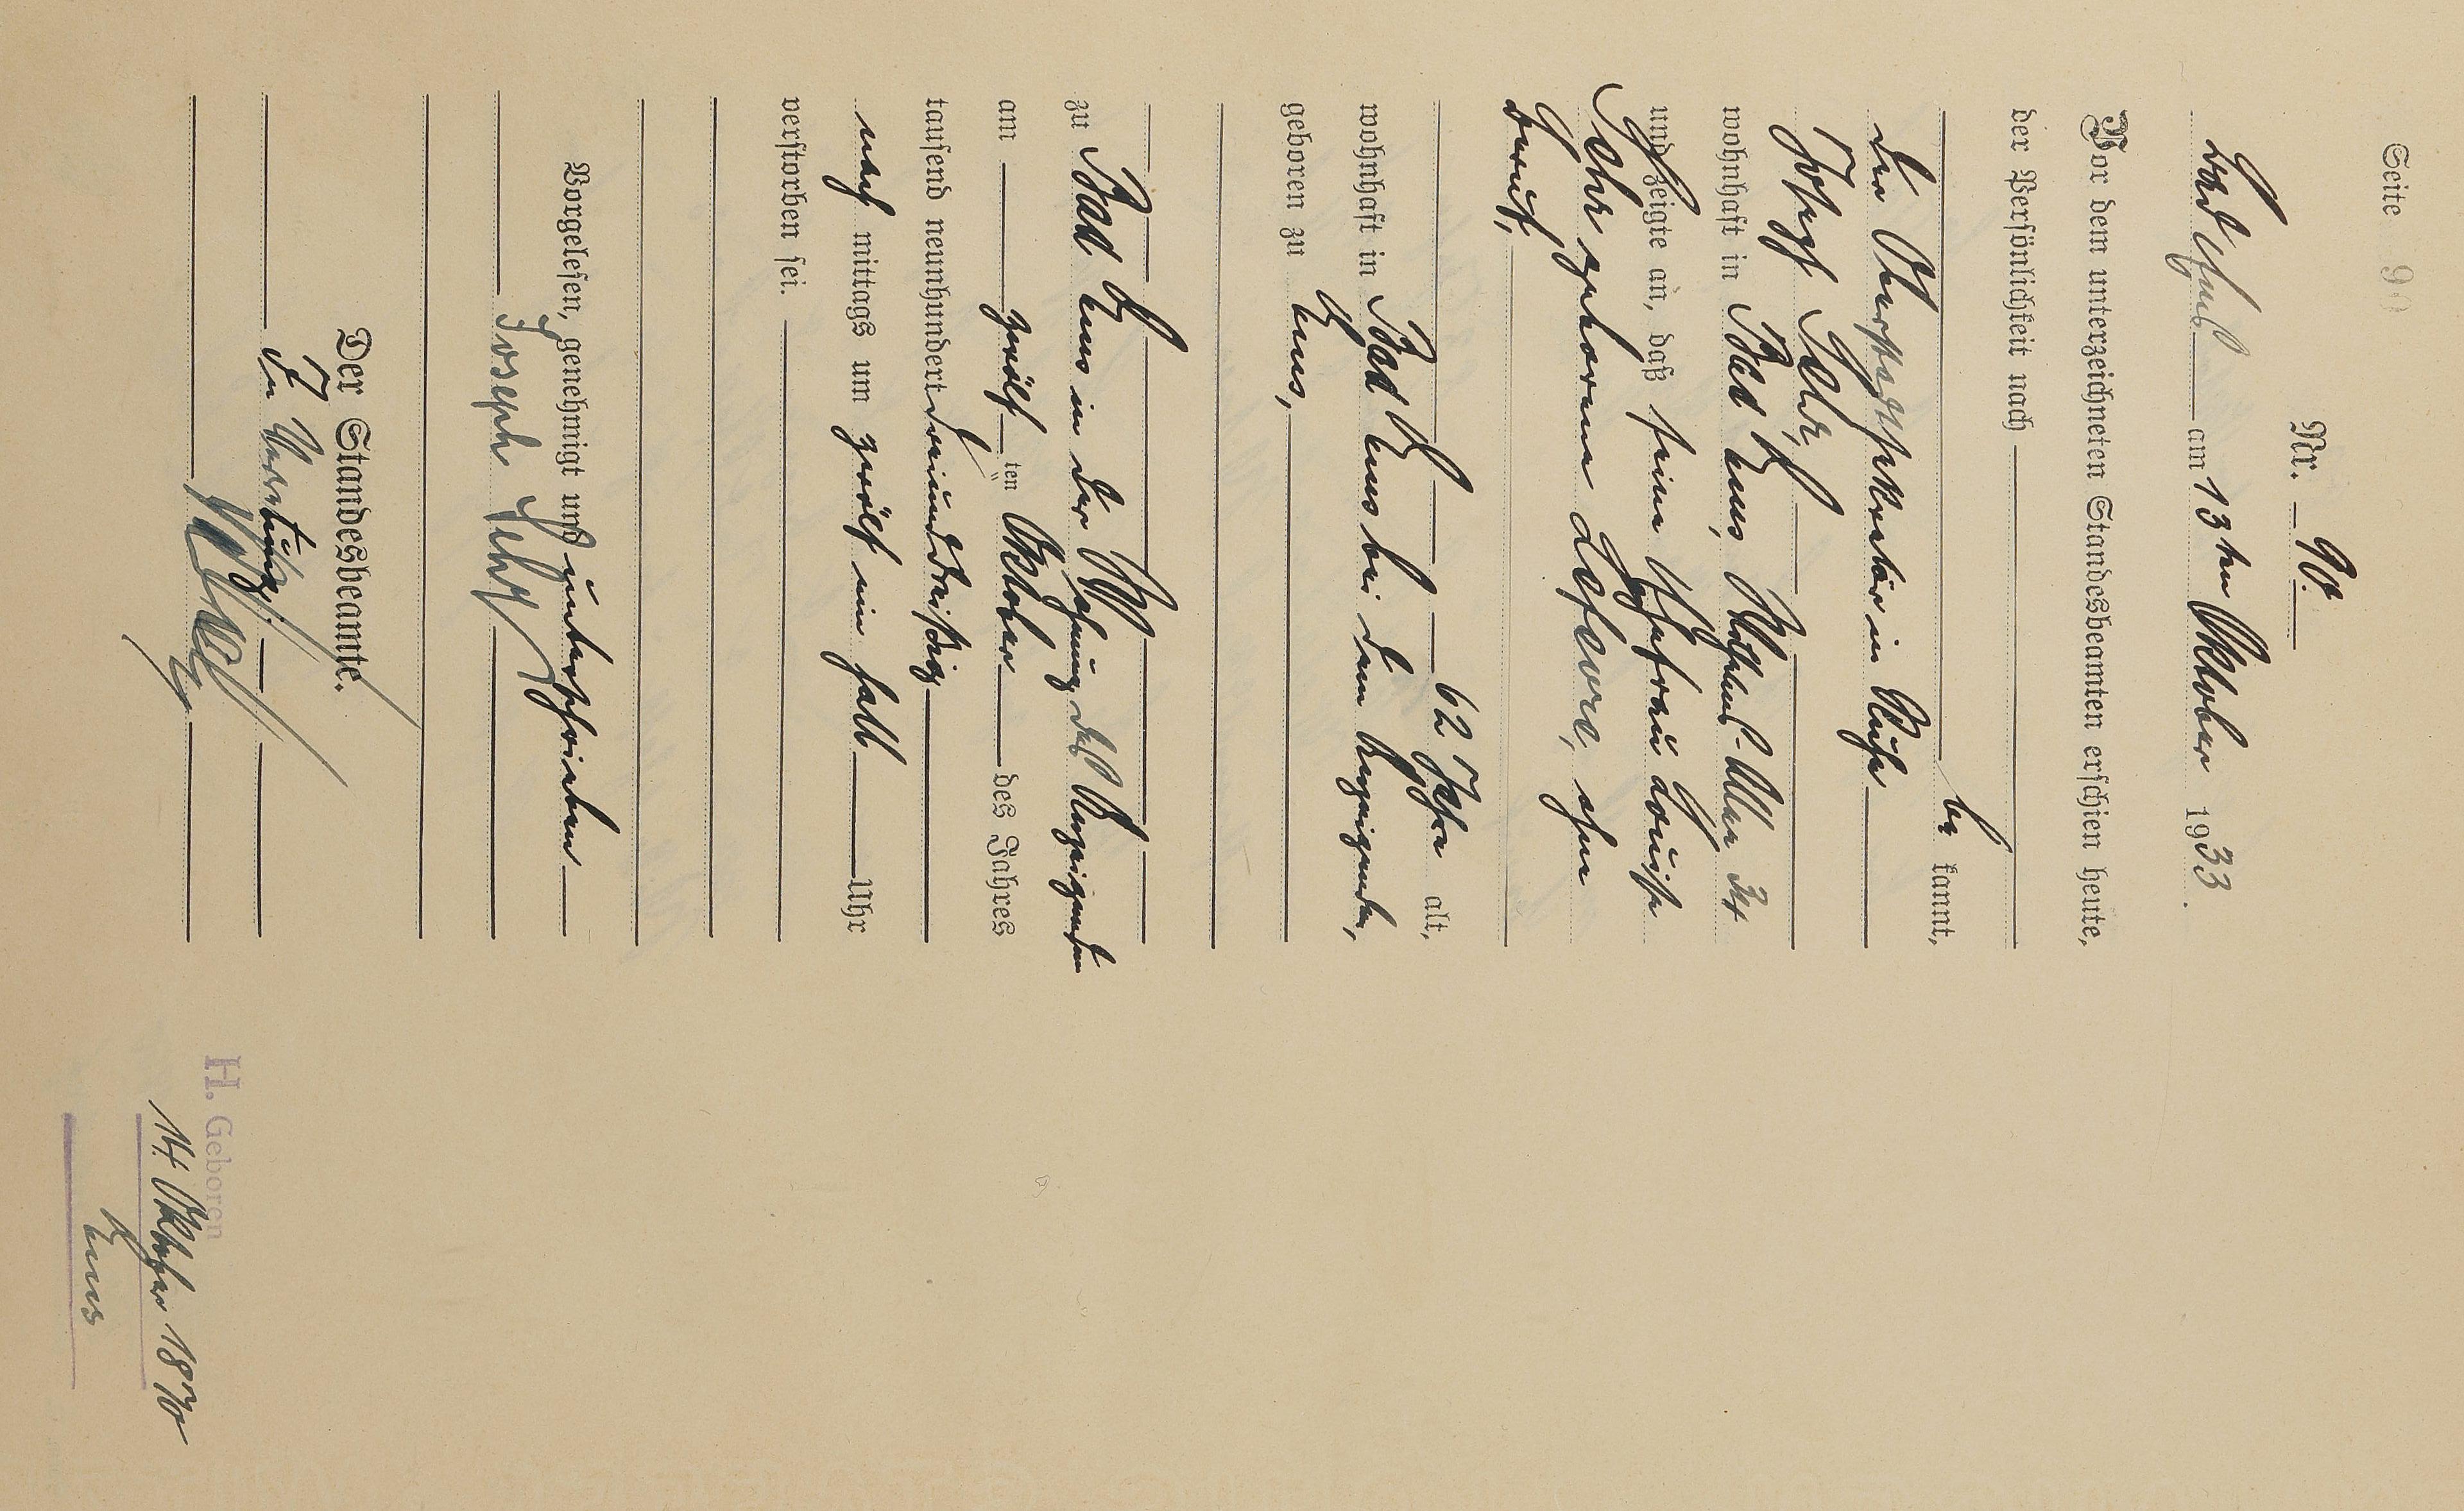 Seite 90
Nr. 90.
Nordhaus am 13ten Oktober 1933.
Vor dem unterzeichneten Standesbeamten erschien heute,
der Persönlichkeit nach
be kannt,
der Oberstadtsekretär in Ruhe
Joseph Fehr,
wohnhaft in Bad Ems, Allee 34
und zeigte an, daß seine Ehefrau Louise
Fehr geborene ohne
Beruf,
62 Jahre alt,
wohnhaft in Bad Ems bei dem Anzeigenden,
geboren zu Ems,
zu Bad Ems in der Wohnung des Anzeigenden
am zwölf ten Oktober des Jahres
tausend neunhundert dreiunddreißig
nach mittags um zwölf ein halb Uhr
verstorben sei.
Vorgelesen, genehmigt und unterschrieben
Joseph Fehr
Der Standesbeamte.
In Vertretung:
H. Geboren
14. Oktober 1870
Ems